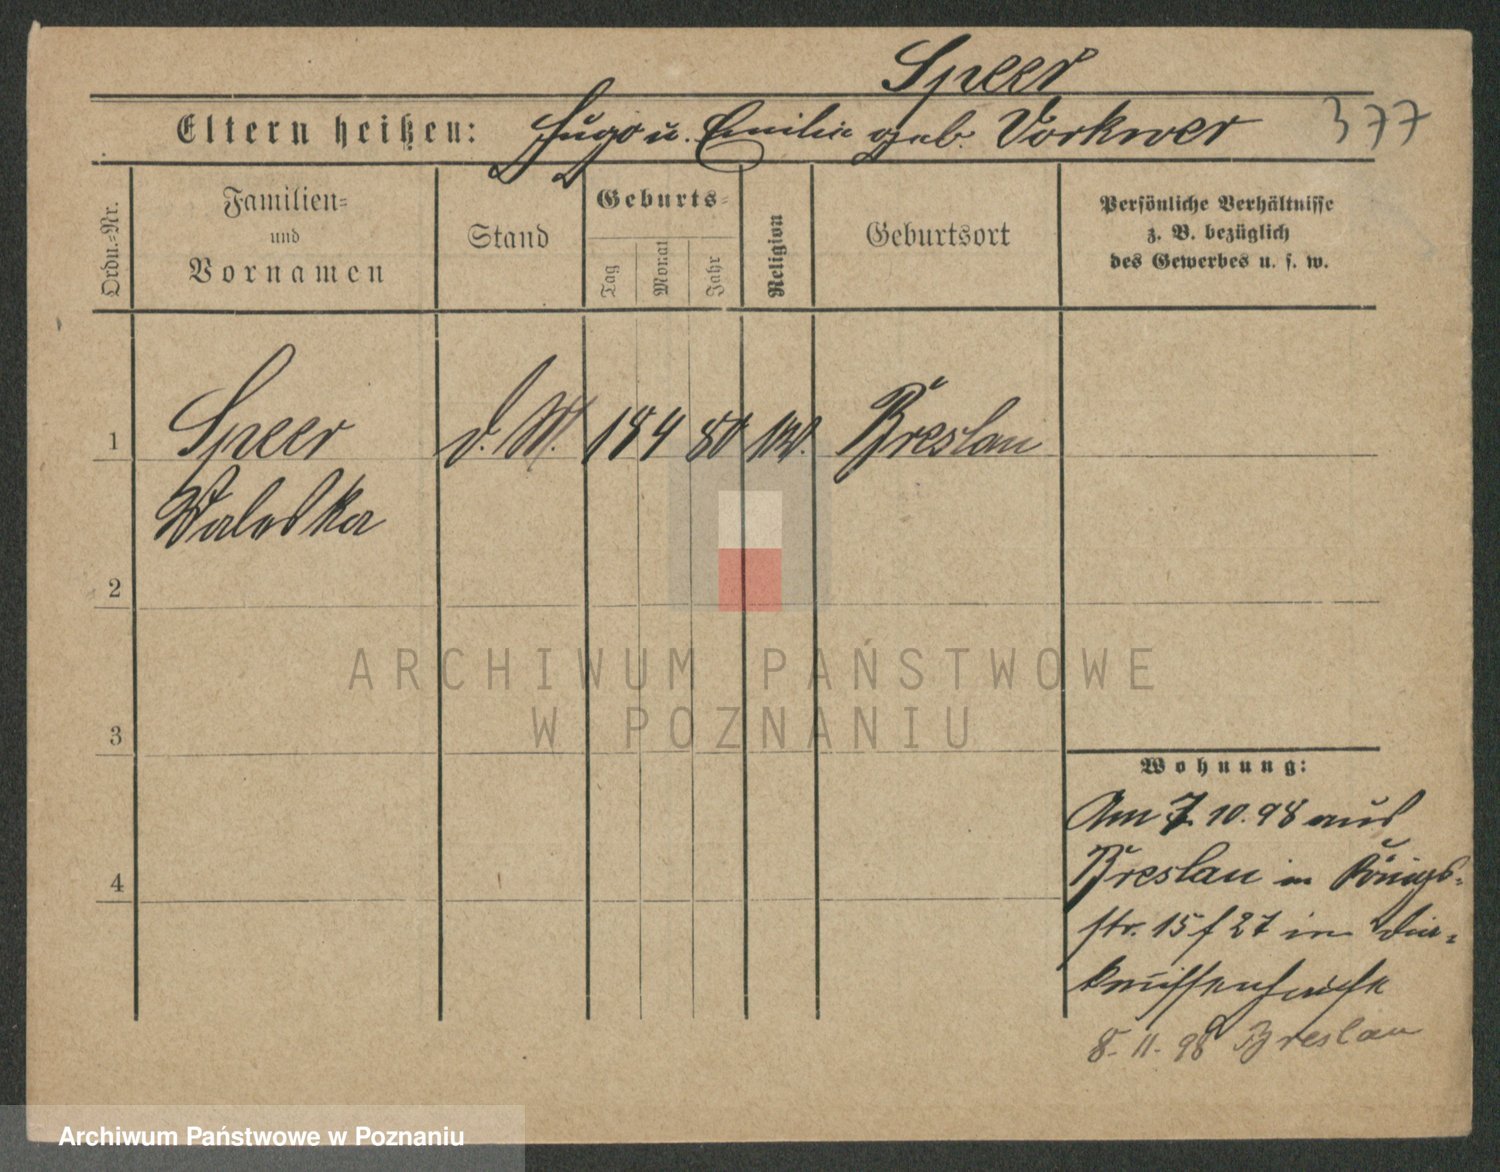 Speer
Eltern heißen: Hugo u. Emilie geb. Vorkwer
377
Ordn.-Nr.
Familien-
und
Vornamen
Stand
Geburts-
Tag
Monat
Jahr
Religion
Geburtsort
Persönliche Verhältnisse
z. B. bezüglich
des Gewerbes u. s. w.
1
Speer
d. M. 18 4 80 Breslau
Waleska
2
ARCHIWUM PAŃSTWOWE
W POZNANIU
3
Wohnung:
Am 7. 10. 98 aus
Breslau in Königs-
4
str. 15 f 27 im Dia-
konissenhause
8. 11. 98 Breslau
Archiwum Państwowe w Poznaniu